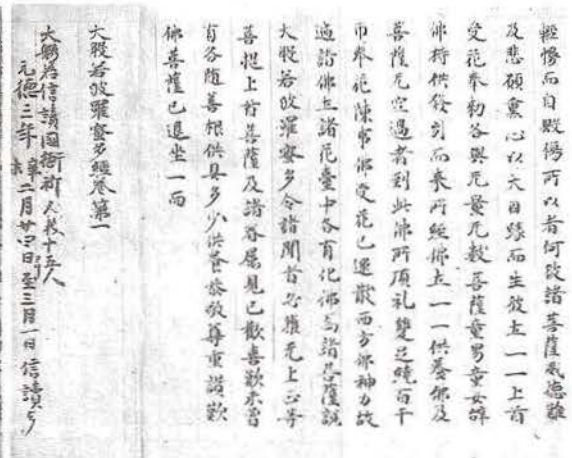 輕慢而自毀傷所以者何彼諸菩薩威德難
及悲願熏心以大因緣而生彼土一一上首
受花奉勅各與无量无數菩薩童男童女辞
佛持供發引而来所經佛土一一供養佛及
菩薩无空過者到此佛所頂礼雙足繞百千
帀奉花陳事佛受花已還散西方佛神力故
遍諸佛土諸花臺中各有化佛為諸菩薩說
大般若波羅蜜多令諸聞者必獲无上正等
菩提上首菩薩及諸眷屬見已歡喜歎未曾
有各隨善根供具多少供養恭敬尊重讃歎
佛菩薩已退坐一面
大般若波羅蜜多經卷第一
大般若信讀国衙祈人数十五人
元德三年辛未二月廿四日至三月一日信讀了